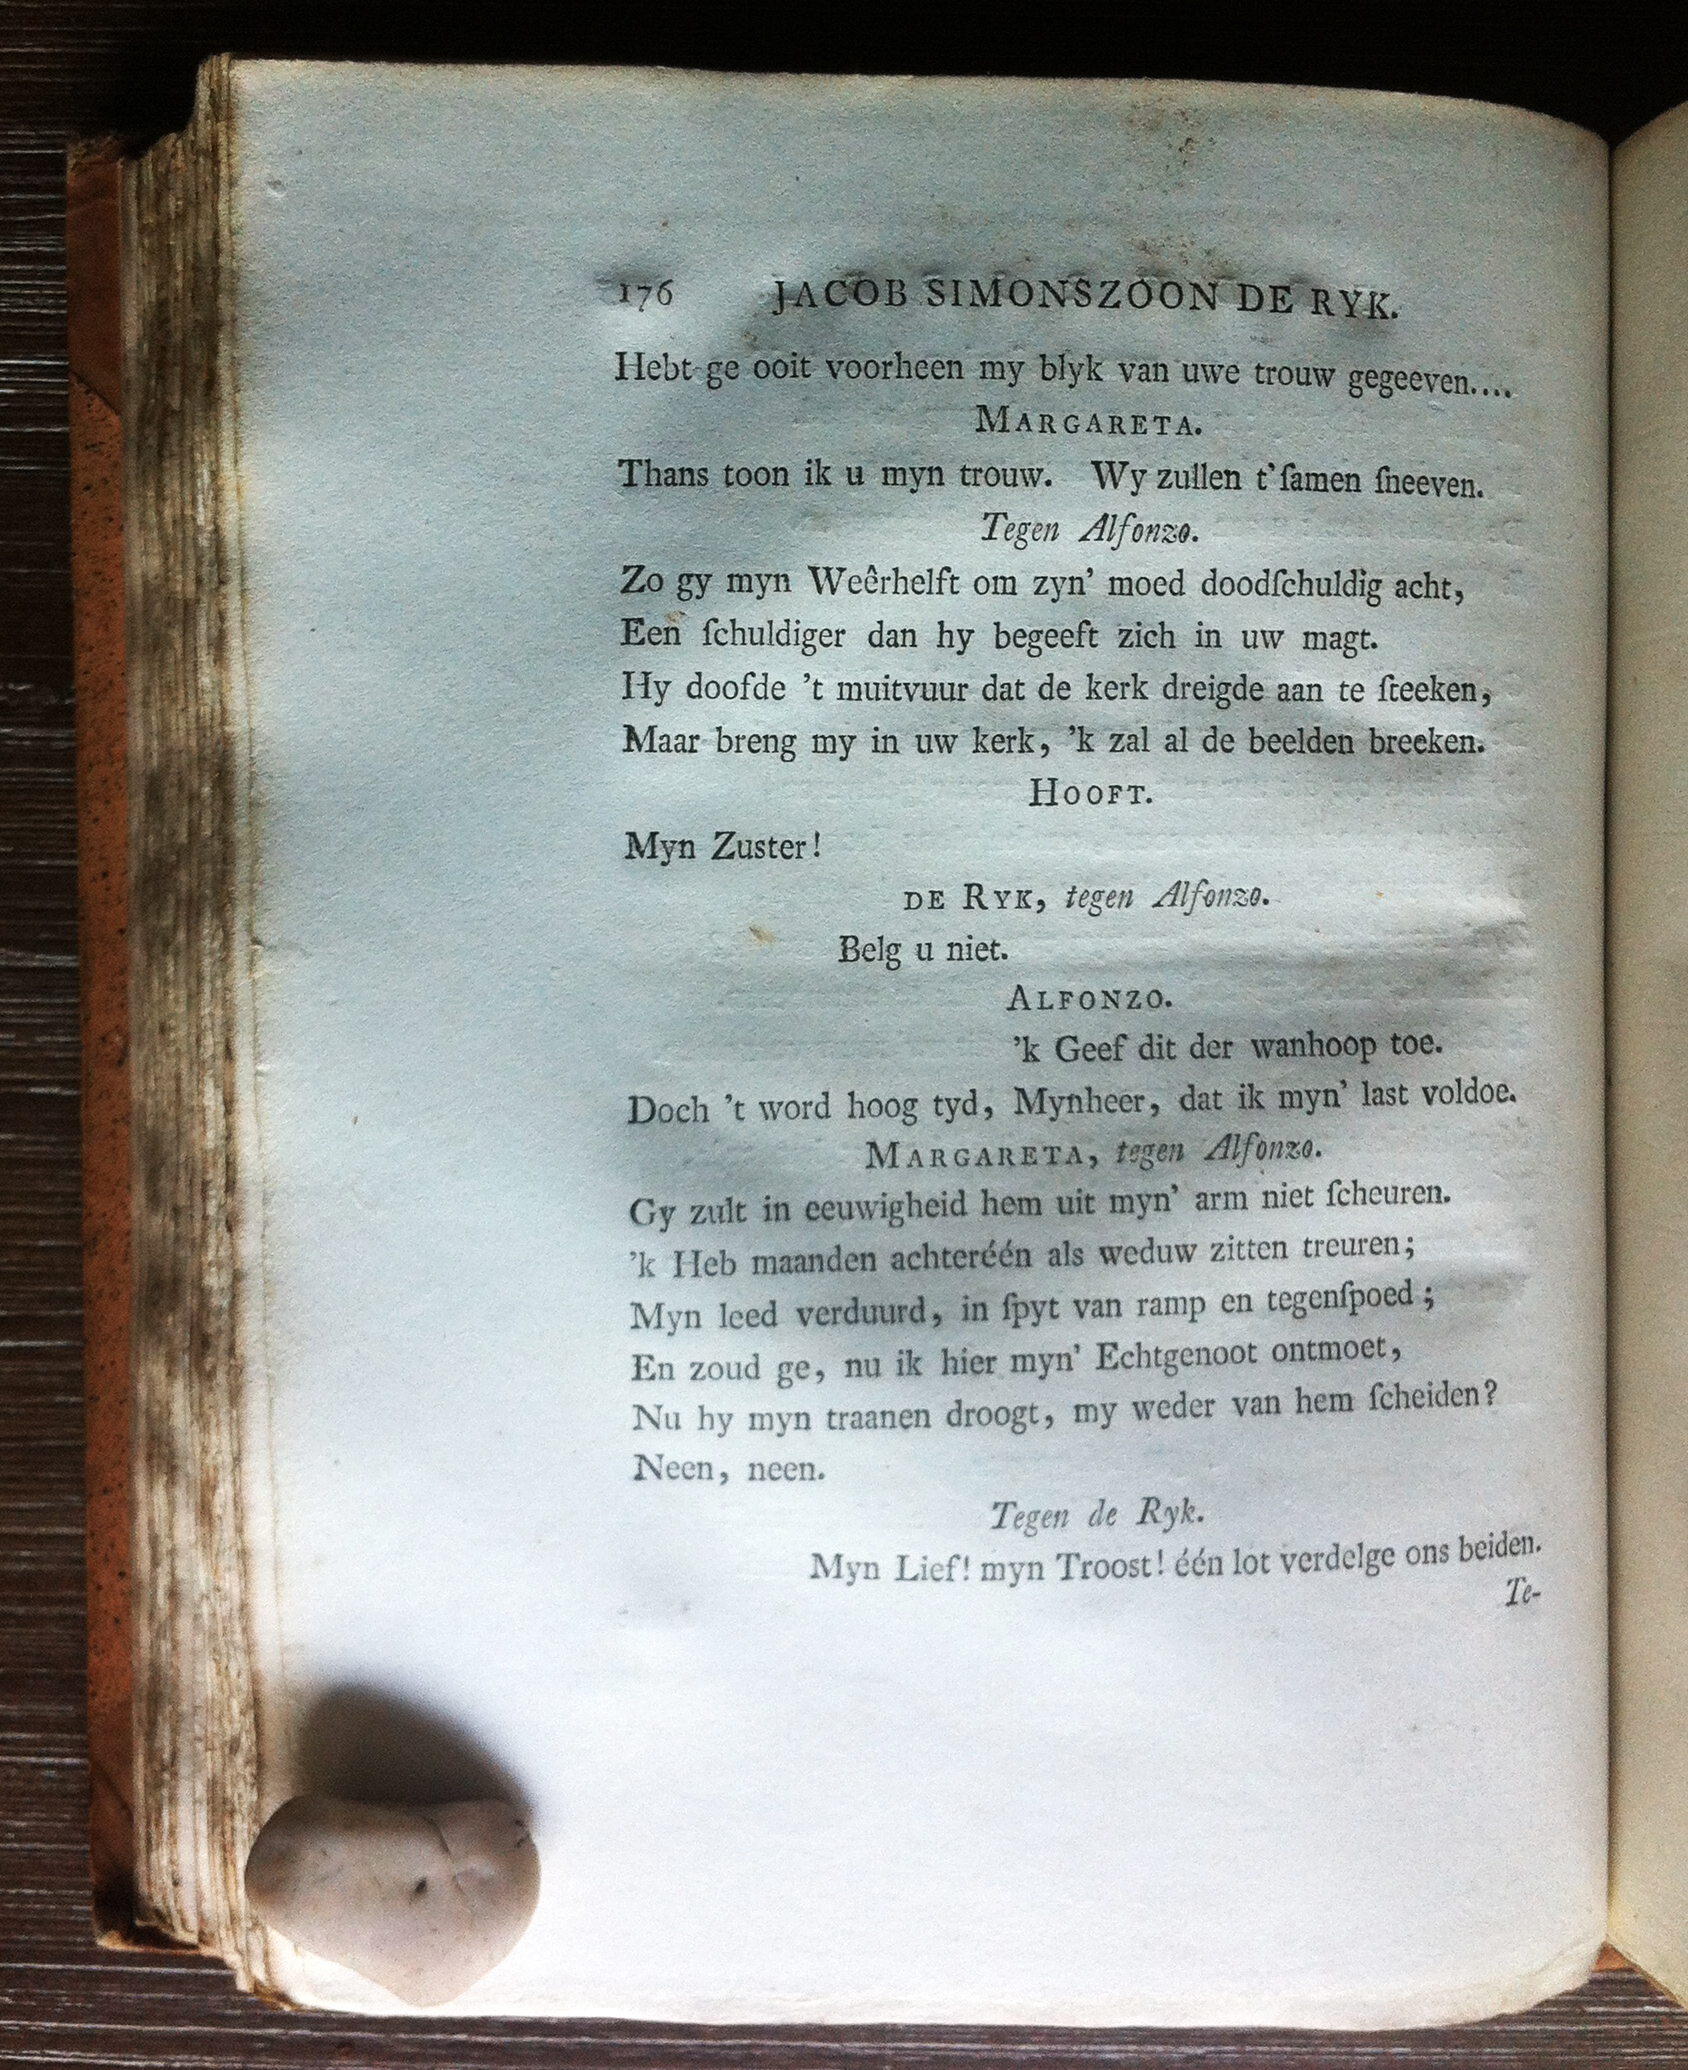 176 JACOB SIMONSZOON DE RYK.
Hebt ge ooit voorheen my blyk van uwe trouw gegeeven....
MARGARETA.
Thans toon ik u myn trouw. Wy zullen t'ſamen ſneeven.
Tegen Alfonzo.
Zo gy myn Weêrhelft om zyn' moed doodſchuldig acht,
Een ſchuldiger dan hy begeeft zich in uw magt.
Hy doofde 't muitvuur dat de kerk dreigde aan te ſteeken,
Maar breng my in uw kerk, 'k zal al de beelden breeken.
HOOFT.
Myn Zuster!
DE RYK, tegen Alfonzo.
Belg u niet.
ALFONZO.
'k Geef dit der wanhoop toe.
Doch 't word hoog tyd, Mynheer, dat ik myn' last voldoe.
MARGARETA, tegen Alfonzo.
Gy zult in eeuwigheid hem uit myn' arm niet ſcheuren.
'k Heb maanden achteréén als weduw zitten treuren;
Myn leed verduurd, in ſpyt van ramp en tegenſpoed;
En zoud ge, nu ik hier myn' Echtgenoot ontmoet,
Nu hy myn traanen droogt, my weder van hem ſcheiden?
Neen, neen.
Tegen de Ryk.
Myn Lief! myn Troost! één lot verdelge ons beiden.
Te-